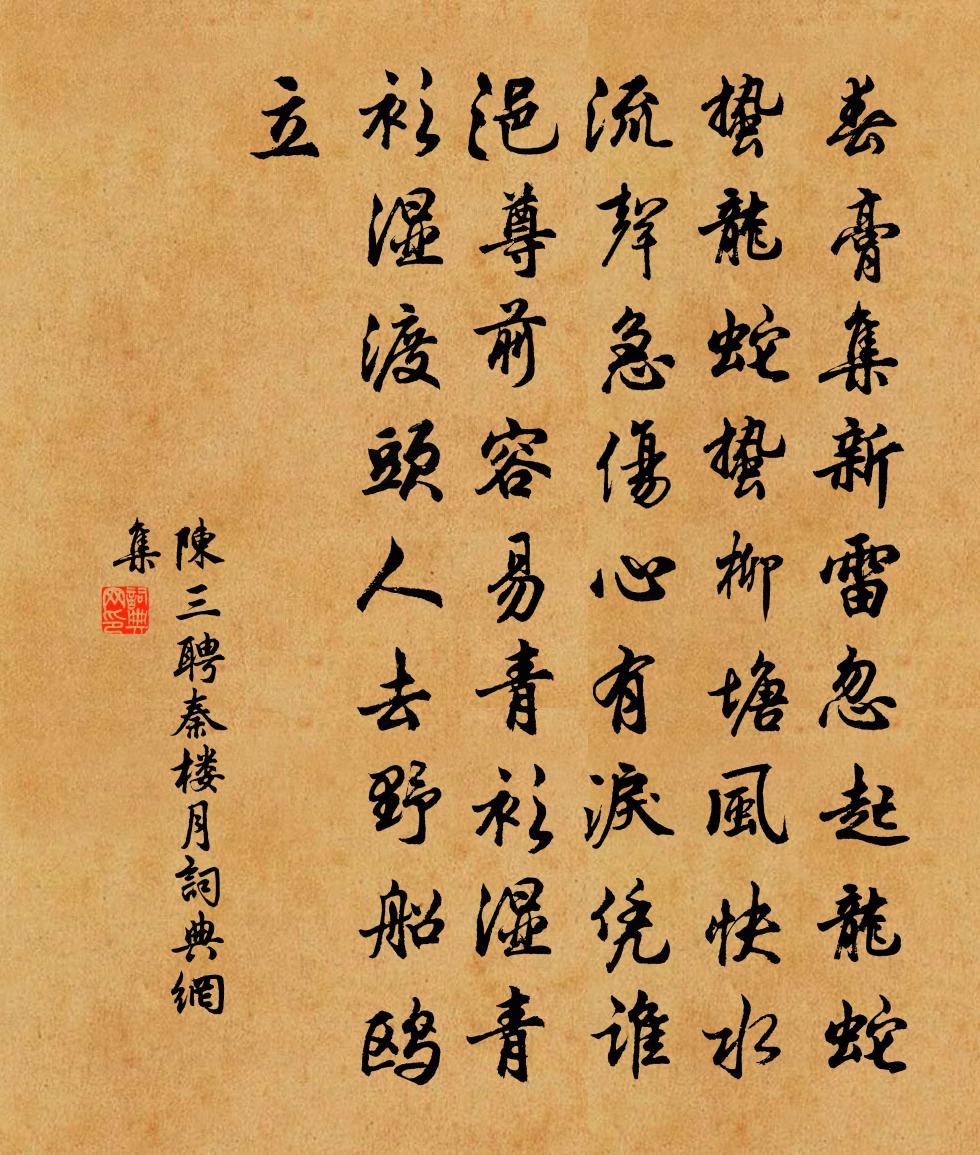 春膏集新雷忽起龍蛇
蟄龍蛇蟄柳塘風快水
流聲急傷心有淚凭誰
浥尊前容易青衫湿青
衫湿渡頭人去野船鸥
立
陳三聘秦楼月詞典網
集
詞典
网印